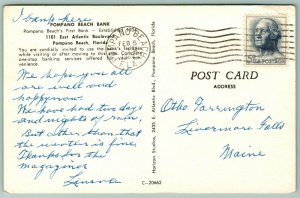 I bank here
POMPANO BEACH BANK
Pompano Beach's First Bank - Established
1101 East Atlantic Boulevard
Pompano Beach, Florida
You are cordially invited to use the bank's facilities
while visiting or after moving to this area. Complete
one-stop banking services offered for your con-
venience.
FEB 5
U.S. POSTAGE
POST CARD
ADDRESS
We hope you all
are well and
happy now.
We have had two days
and nights of rain.
But other than that
the weather is fine.
Thanks for the
magazines
Otho Farrington
Livermore Falls
Maine
C-20662